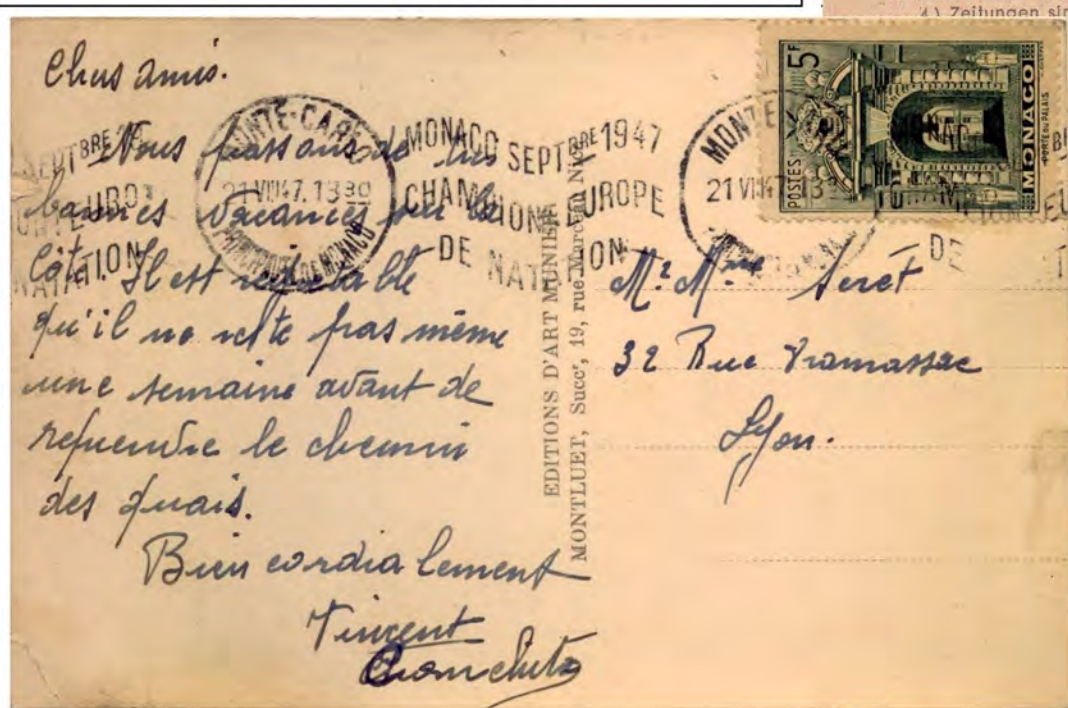 4) Zeitungen sin
Chers amis.
Nous passons de très
bonnes vacances sur la
côte. Il est regrettable
qu'il ne reste pas même
une semaine avant de
reprendre le chemin
des quais.
Bien cordialement
Vincent
MONTE-CARLO
21 VIII 47. 13
PRINCIPAUTE DE MONACO
MONACO SEPTBRE 1947
CHAMPIONN EUROPE
DE NATATION
EDITIONS D'ART MUNIER
MONTLUET, Succr, 19, rue Marceau Nice
MONTE
21 VIII 47. 13
5F
POSTES
MONACO
PORTE DU PALAIS
Mr Mme Seret
32 Rue Tramassac
Lyon.